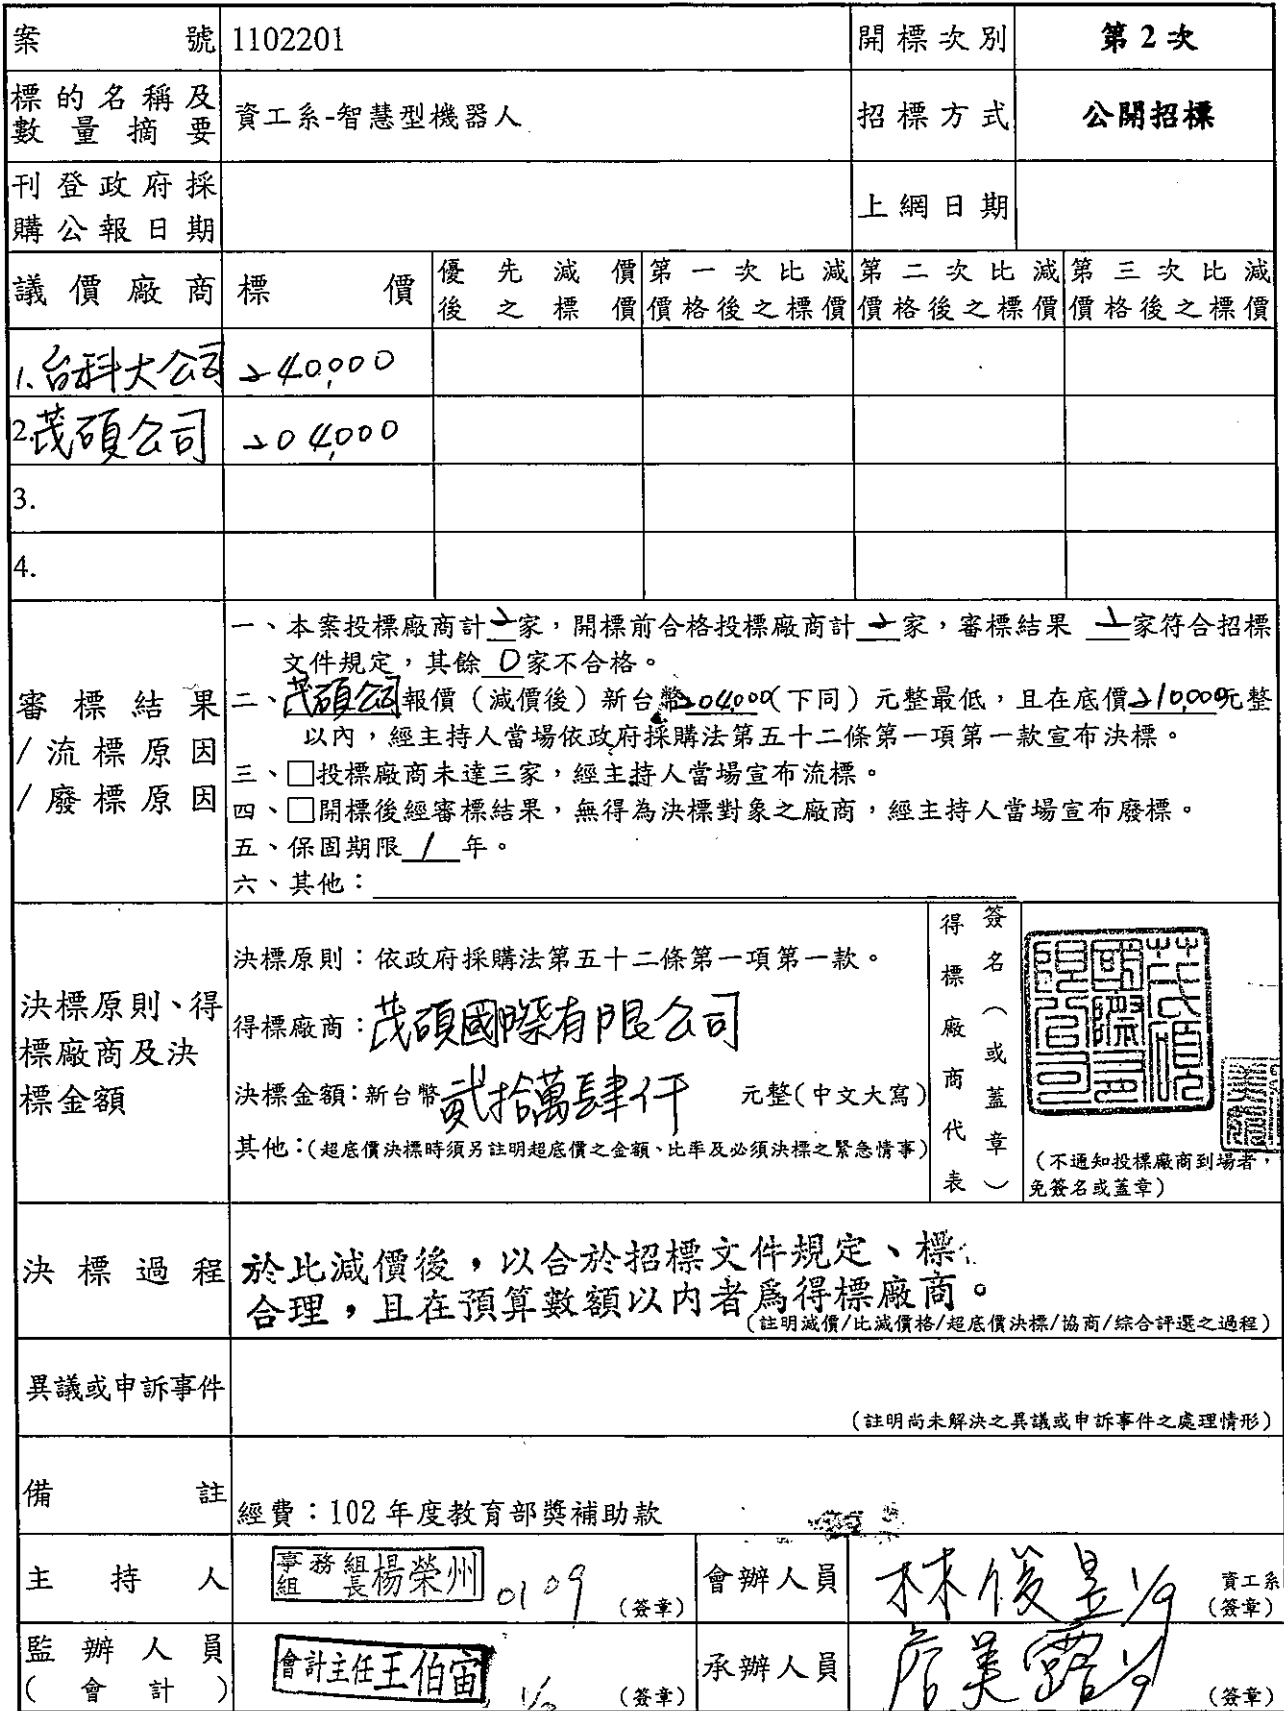 案號 1102201 開標次別 第2次
標的名稱及數量摘要 資工系-智慧型機器人 招標方式 公開招標
刊登政府採購公報日期 上網日期
議價廠商 標價 優先減價後之標價 第一次比減價格後之標價 第二次比減價格後之標價 第三次比減價格後之標價
1.台科大公司 240,000
2.茂碩公司 204,000
3.
4.
審標結果/流標原因/廢標原因
一、本案投標廠商計2家，開標前合格投標廠商計2家，審標結果 2家符合招標
文件規定，其餘0家不合格。
二、茂碩公司報價（減價後）新台幣204,000(下同）元整最低，且在底價210,000元整
以內，經主持人當場依政府採購法第五十二條第一項第一款宣布決標。
三、□投標廠商未達三家，經主持人當場宣布流標。
四、□開標後經審標結果，無得為決標對象之廠商，經主持人當場宣布廢標。
五、保固期限1年。
六、其他：
決標原則、得標廠商及決標金額
決標原則：依政府採購法第五十二條第一項第一款。
得標廠商：茂碩國際有限公司
決標金額：新台幣貳拾萬肆仟 元整(中文大寫)
其他：(超底價決標時須另註明超底價之金額、比率及必須決標之緊急情事)
得標廠商代表
簽名（或蓋章）
(不通知投標廠商到場者，
免簽名或蓋章)
決標過程
於比減價後，以合於招標文件規定、標
合理，且在預算數額以內者為得標廠商。
(註明減價/比減價格/超底價決標/協商/綜合評選之過程)
異議或申訴事件
(註明尚未解決之異議或申訴事件之處理情形)
備註
經費：102年度教育部獎補助款
主持人 事務組組長楊榮州 0109 (簽章) 會辦人員 林俊昱 1/9 資工系(簽章)
監辦人員(會計) 會計主任王伯宙 (簽章) 承辦人員 詹美露 1/9 (簽章)